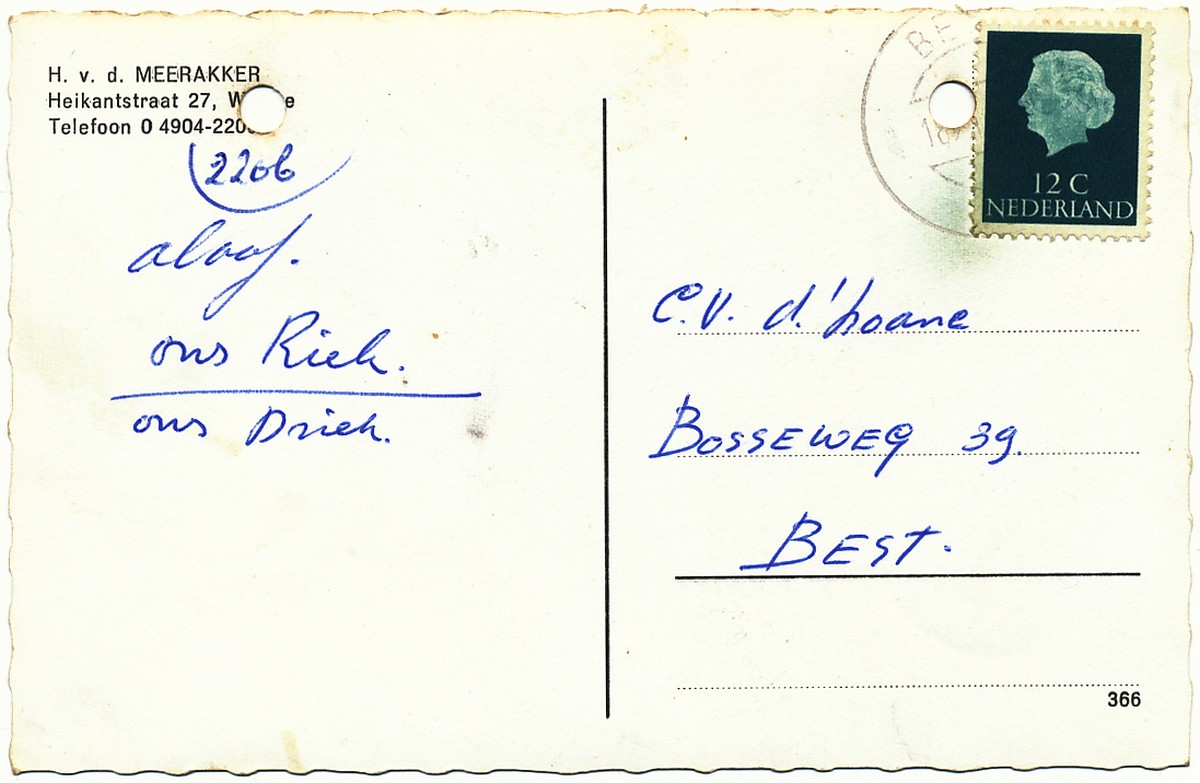 H. v. d. MEERAKKER
Heikantstraat 27,
Telefoon 0 4904-220
2206
alaaf.
ons Riek.
ons Driek.
BE
18
12 C
NEDERLAND
C.V. d.'hoane
BOSSEWEG 39.
BEST.
366